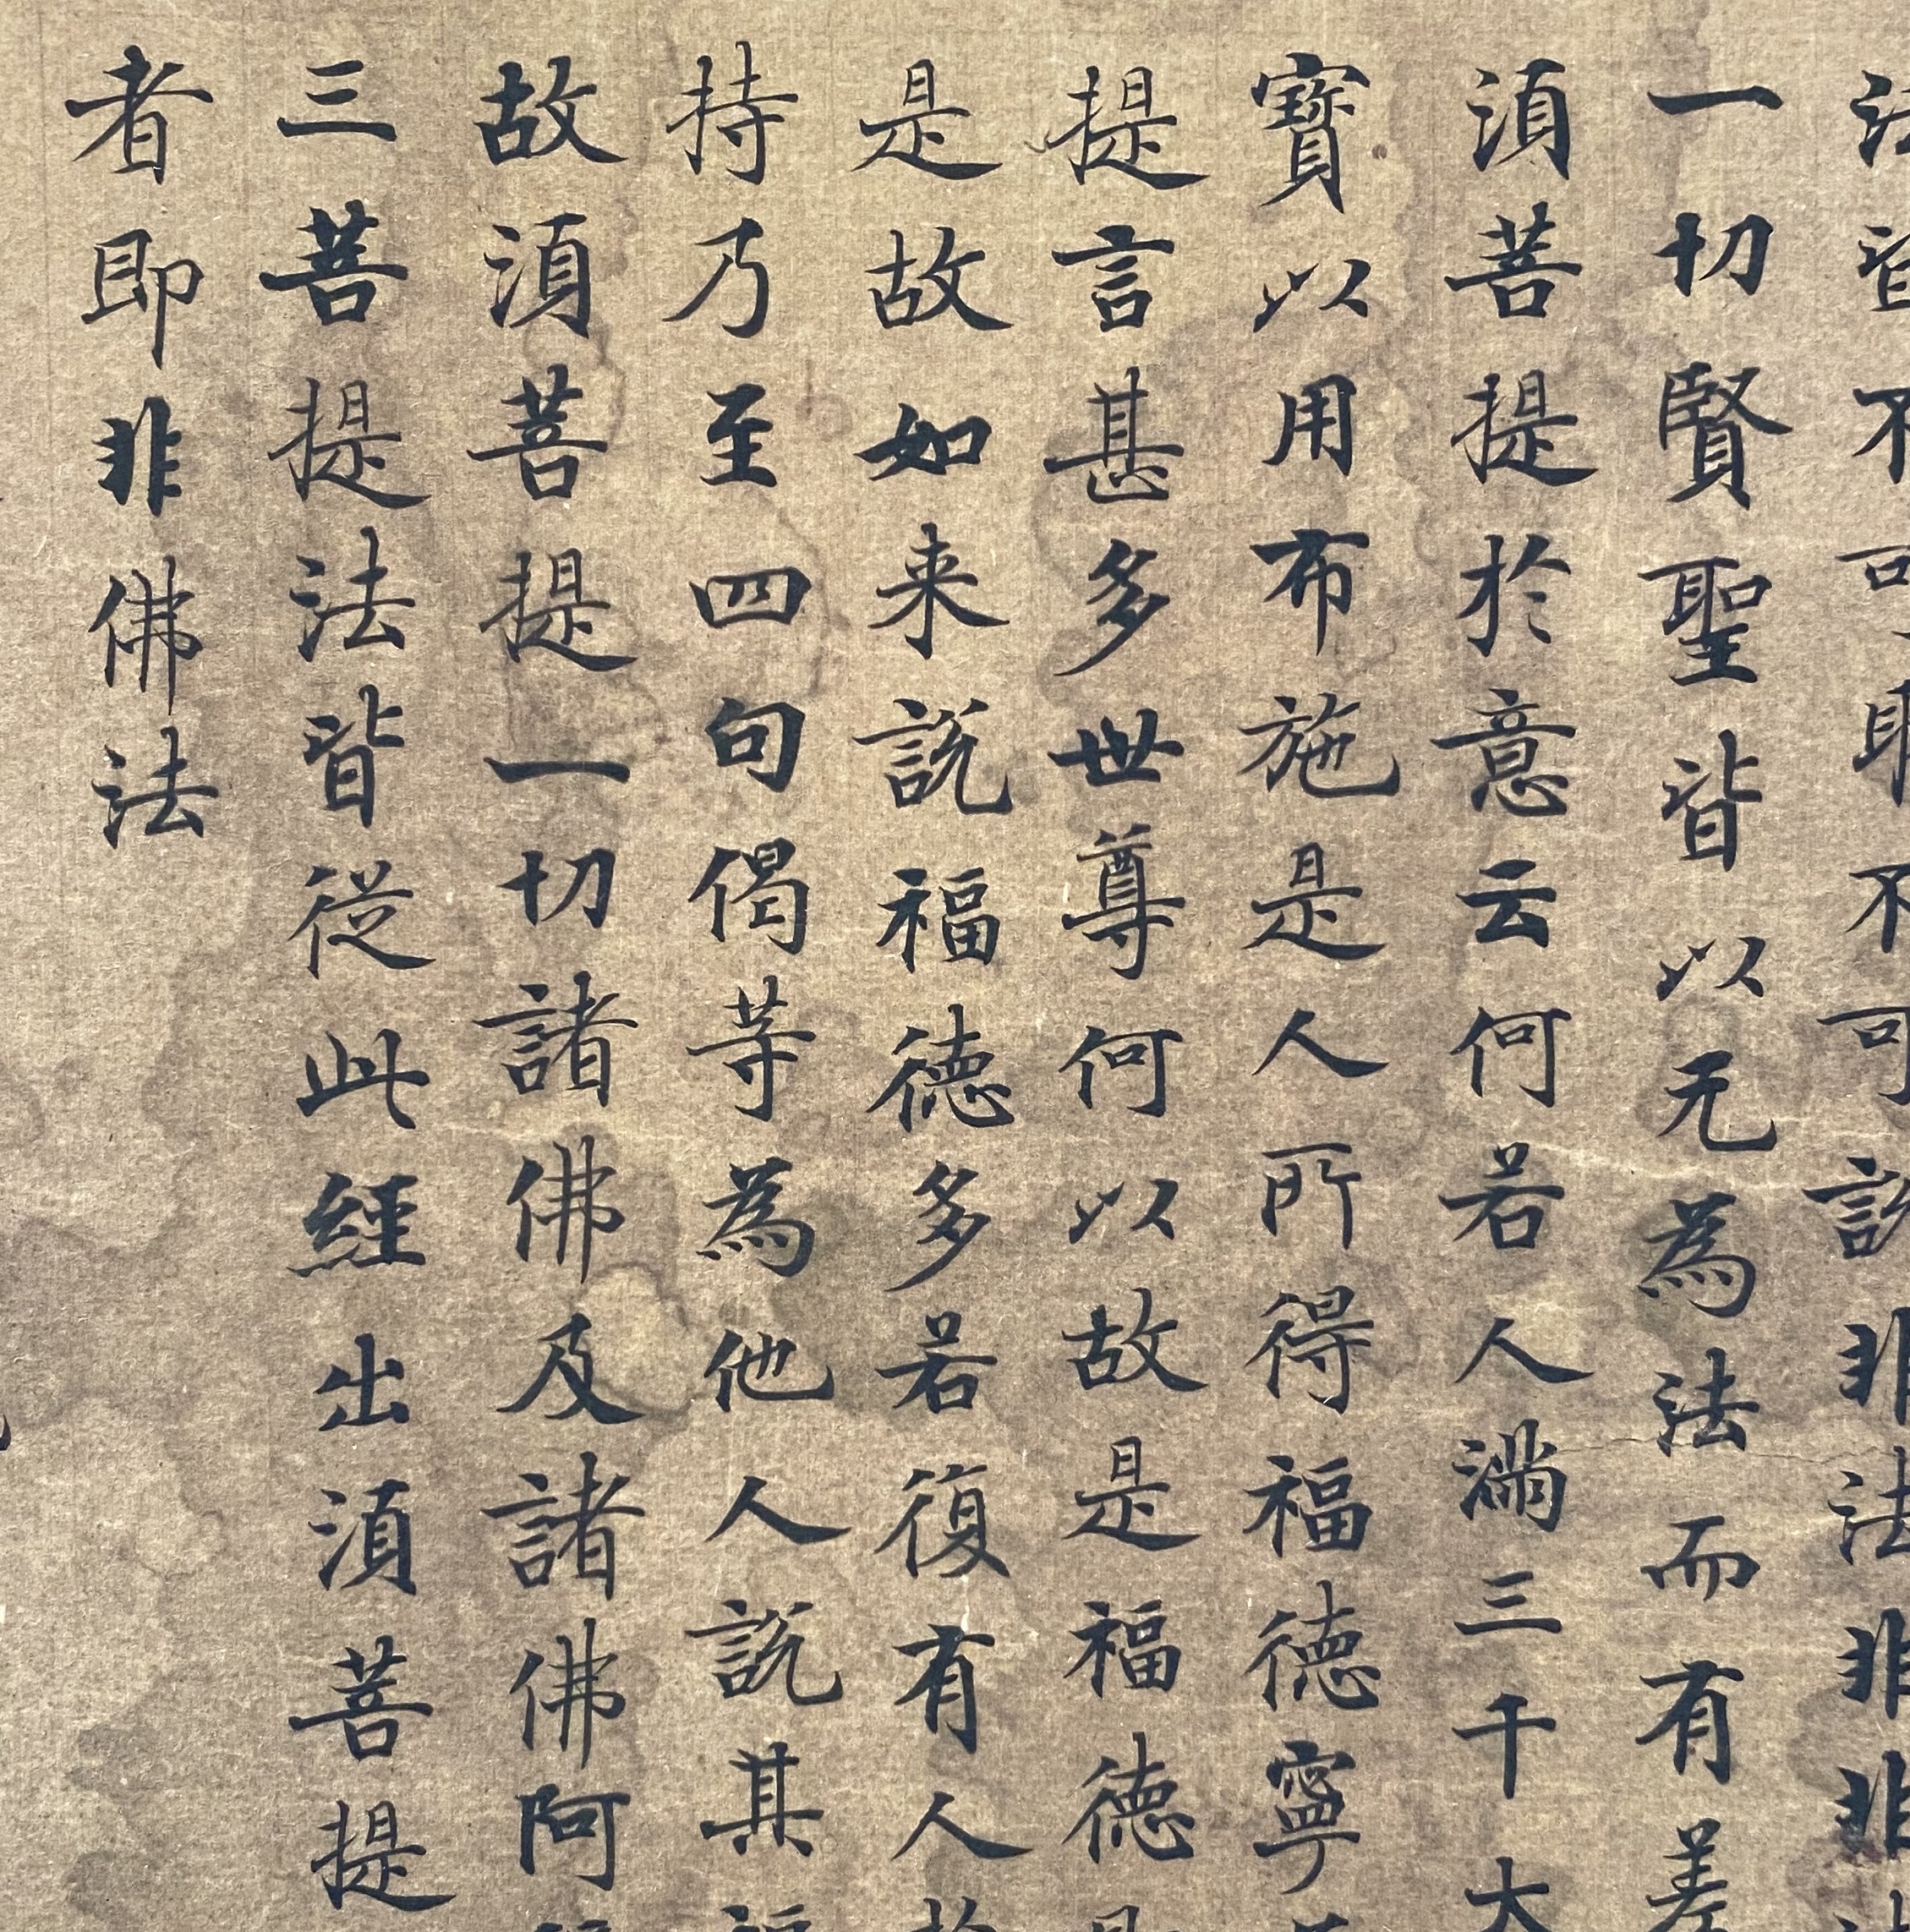 法皆不可取不可說非法非非
一切賢聖皆以无為法而有差
須菩提於意云何若人滿三千大
寶以用布施是人所得福德寧
提言甚多世尊何以故是福德
是故如来說福德多若復有人
持乃至四句偈等為他人說其福
故須菩提一切諸佛及諸佛阿
三菩提法皆從此經出須菩提
者即非佛法